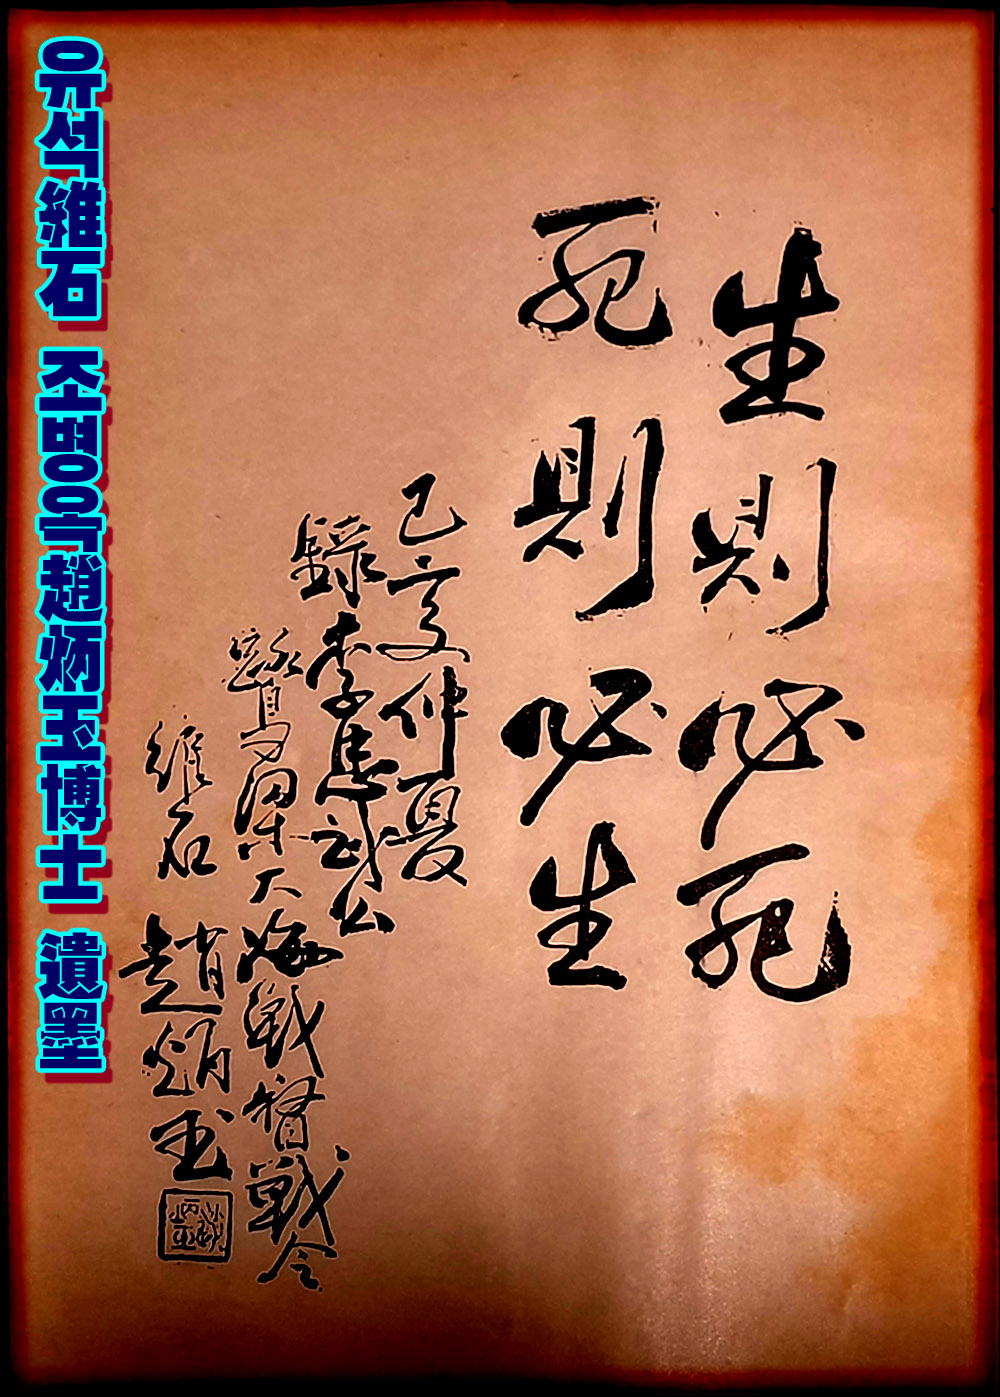 生則必死
死則必生
己亥仲夏
錄李忠武公
鳴梁大海戰督戰令
維石 趙炳玉
유석維石 조병옥趙炳玉博士 遺墨